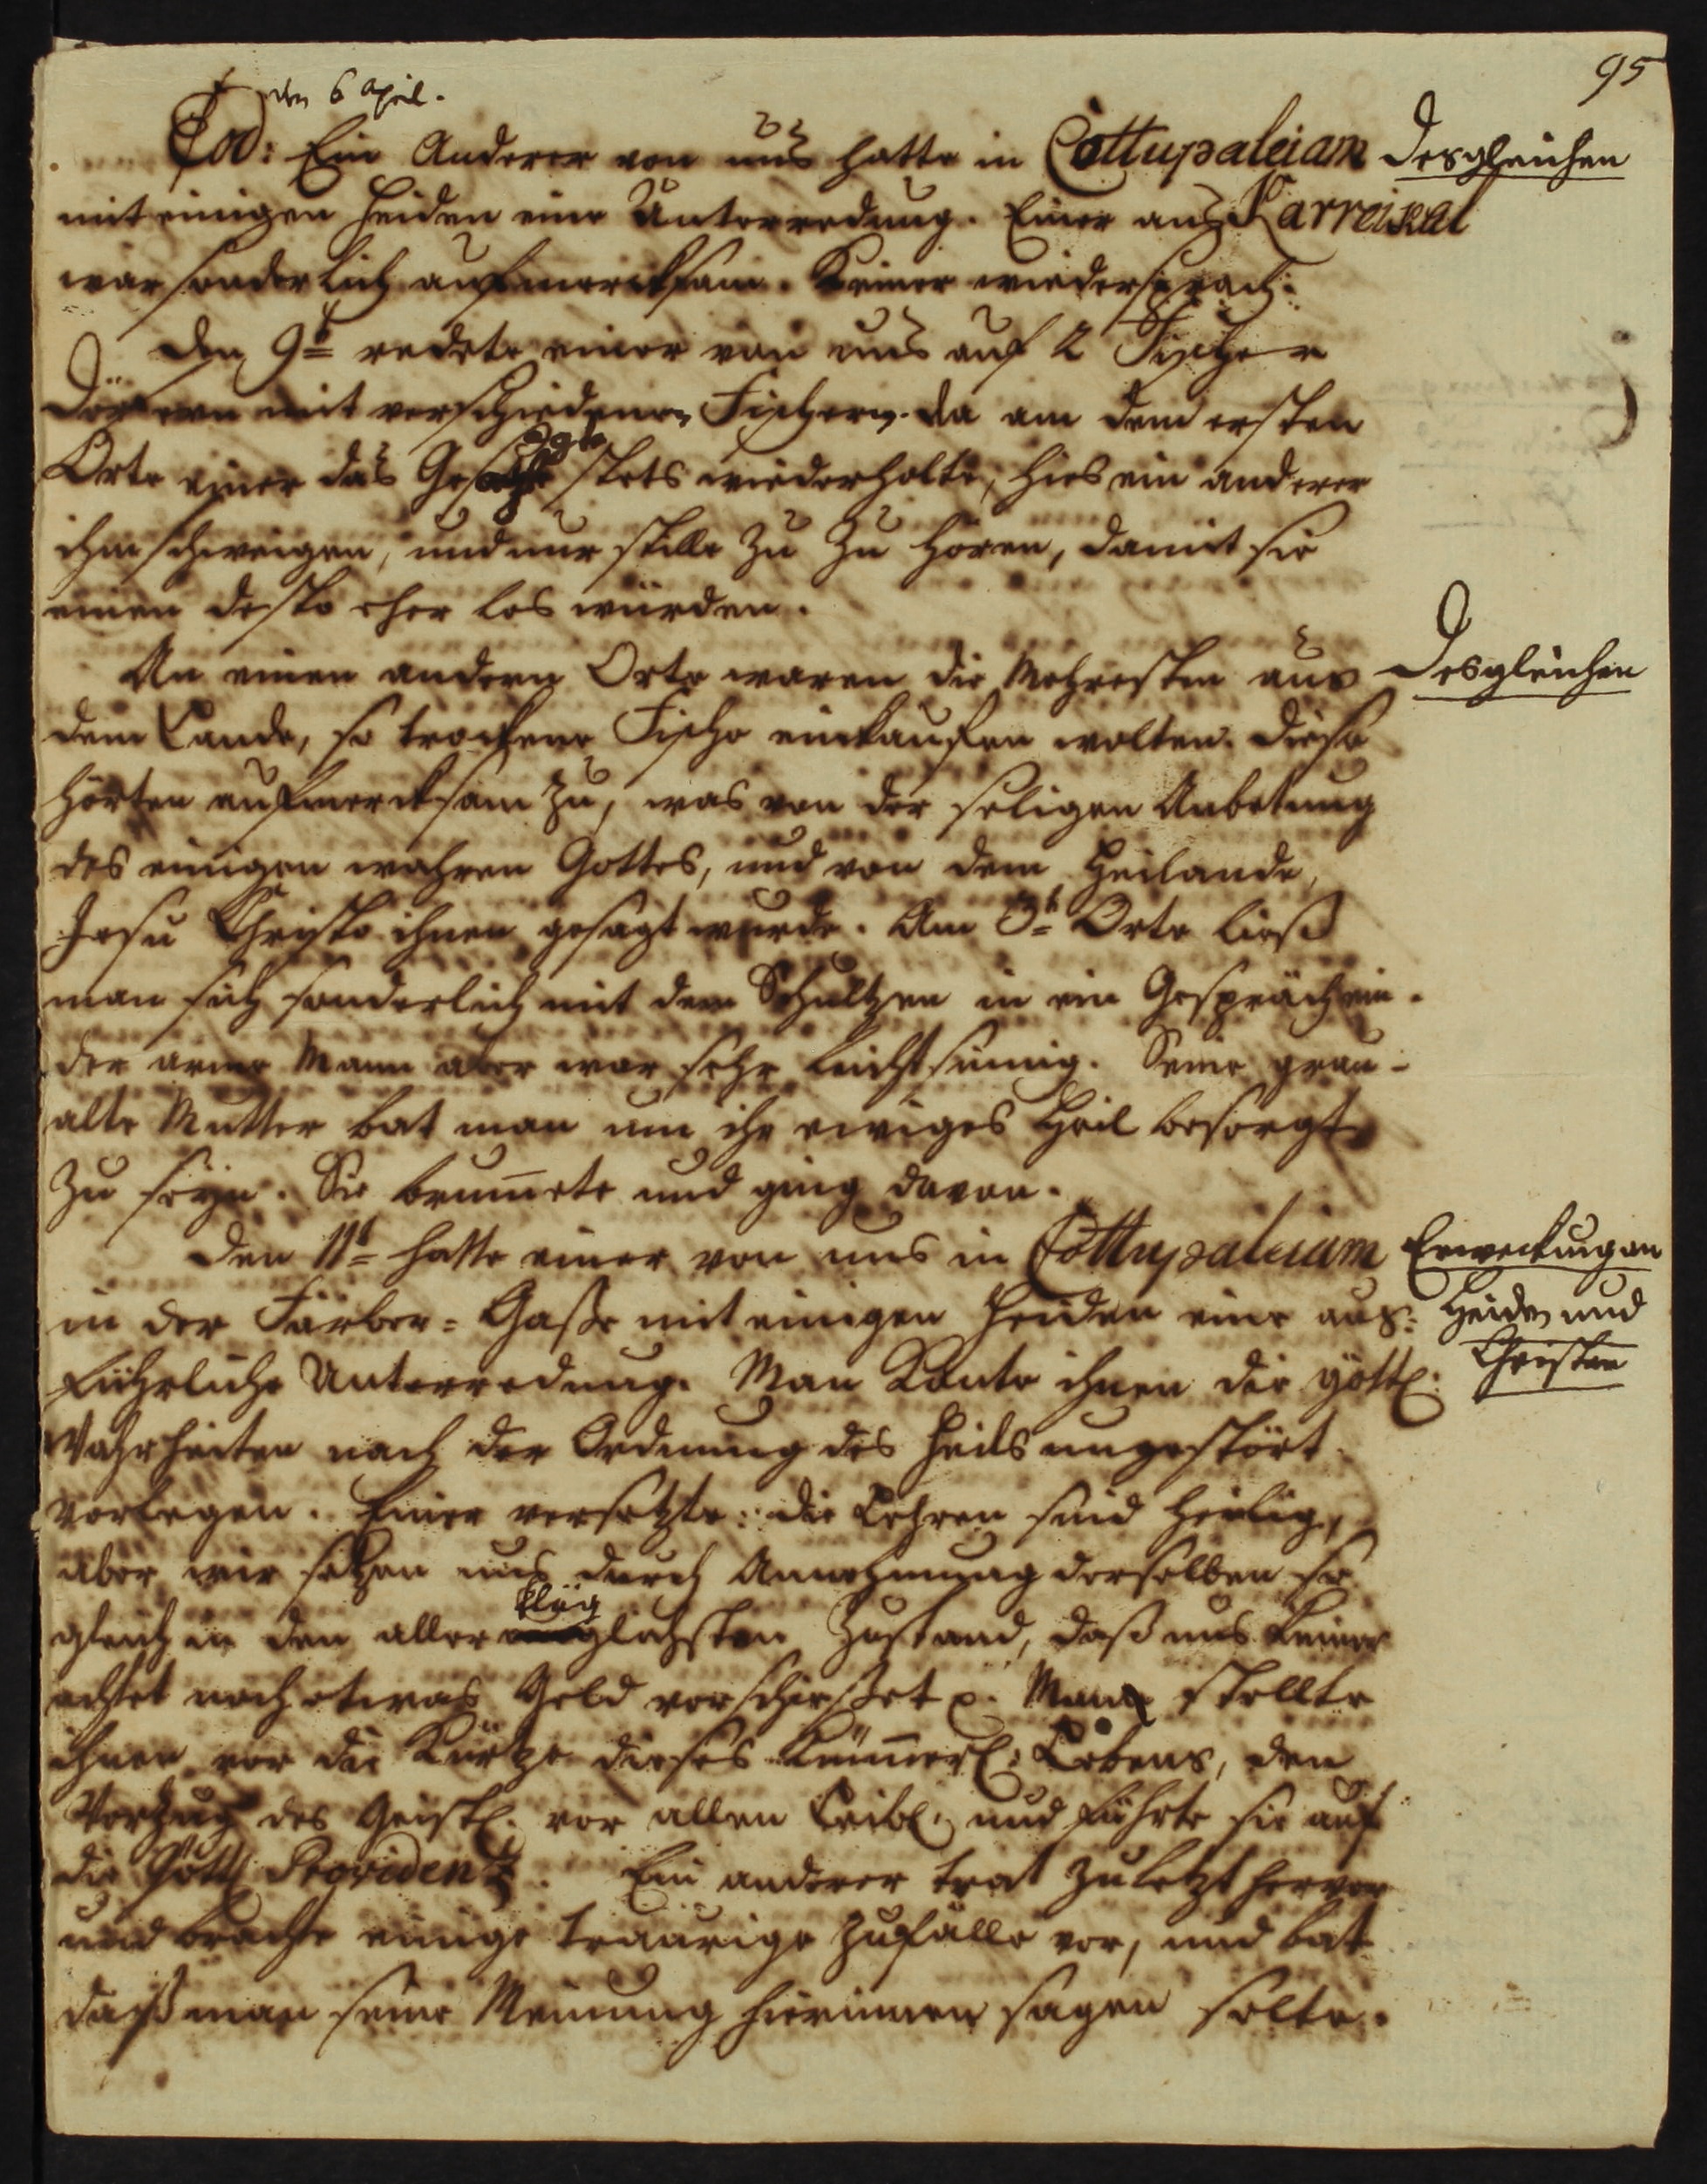 95
den 6 April.
Eod: Ein Anderer von uns hatte in Cottupaleiam
Desgleichen
mit einigen Heiden eine Unterredung. Einer aus Karreikal
war sonderlich aufmercksam. Keiner wiedersprach.
Den 9t redete einer von uns auf 2 Fischer
Dörfern mit verschiedenen Fischern. Da an dem ersten
Orte einer das Gesagte stets wiederholte, hies ein anderer
ihm schweigen, und nur stille zu zu hören, damit sie
einen desto eher los würden.
An einen andern Orte waren die Mehresten aus
Desgleichen
dem Lande, so trockene Fische einkaufen wolten. Diese
hörten aufmercksam zu, was von der seligen Anbetung
des einigen wahren Gottes, und von dem Heilande,
Jesu Christo ihnen gesagt wurde. Am 3t Orte ließ
man sich sonderlich mit dem Schultzen in ein Gespräch ein.
der arme Mann aber war sehr leichtsinnig. Seine grau-
alte Mutter bat man um ihr ewiges Heil besorgt
zu seyn. Sie brum̄ete und ging davon.
Den 11t hatte einer von uns in Cottupaleiam
Erweckung an
Heiden und
Christen
in der Färber-Gaße mit einigen Heiden eine aus-
führliche Unterredung. Man konte ihnen die göttl:
Wahrheiten nach der Ordnung des Heils ungestört
vorlegen. Einer versetzte: die Lehren sind heilig,
aber wir setzen uns durch Annehmung derselben so
gleich in den aller kläglichsten Zustand, daß uns keiner
achtet noch etwas Geld vorschießet p. Man stellte
ihnen vor die Kürtze dieses kümmerl: Lebens, den
Vorzug des Geistl. vor allen Leibl. und führte sie auf
die Göttl Providentz. Ein anderer trat zuletzt hervor
und brachte einige traurige Zufälle vor, und bat
daß man seine Meinung hierinnen sagen solte.